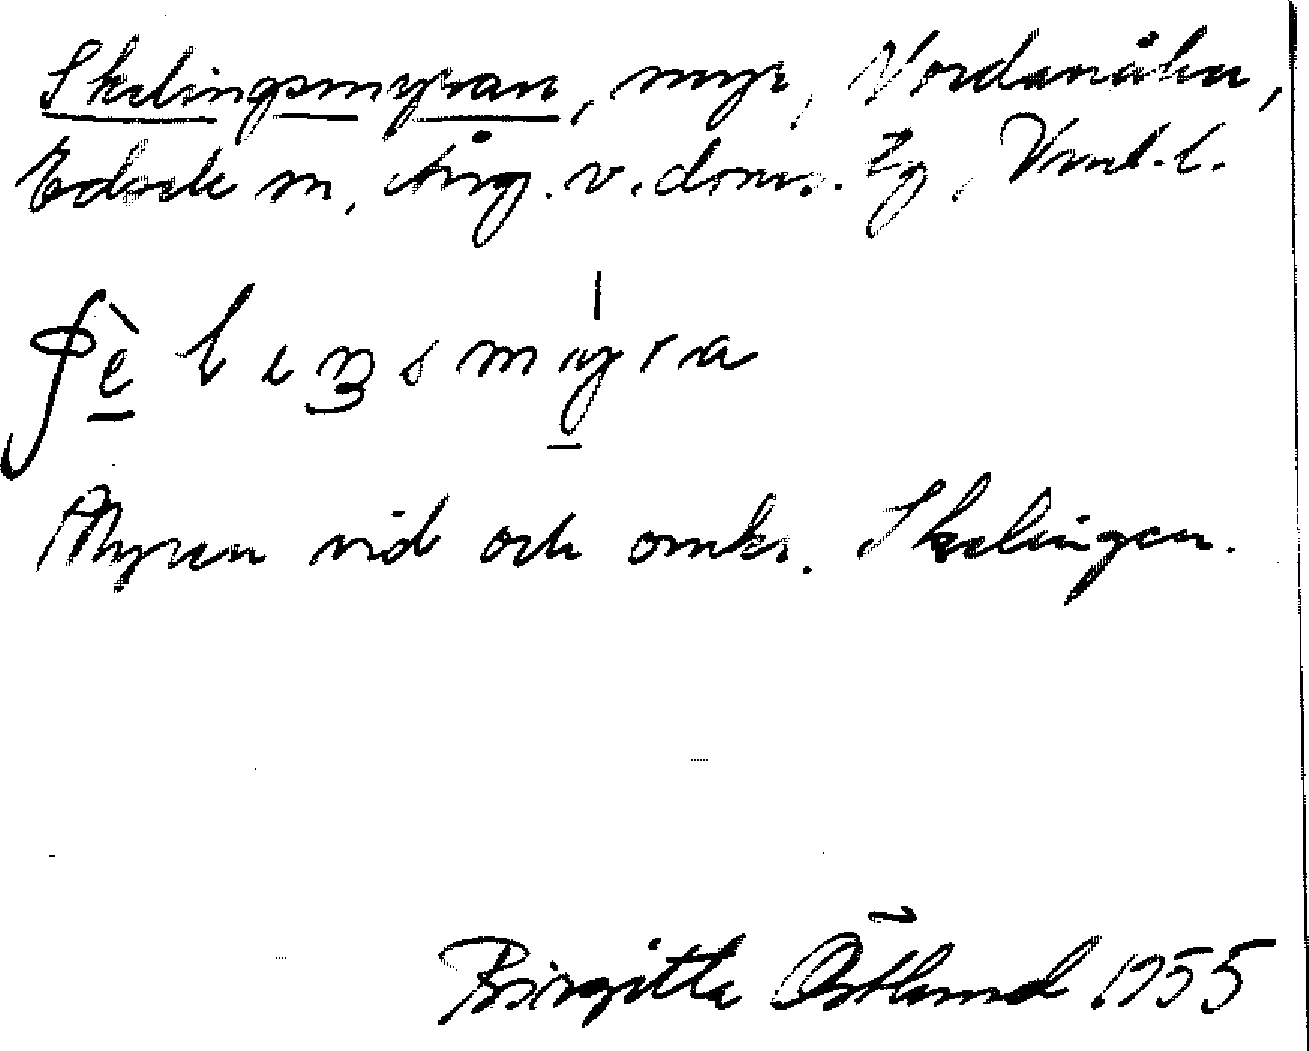 Skelingsmyran, myr, Nordanåker,
Edsele sn, Ång. v. doms. lg, Vnrl. l.
Myren vid och omkr. Skelingen.
Birgitta Östlund 1955